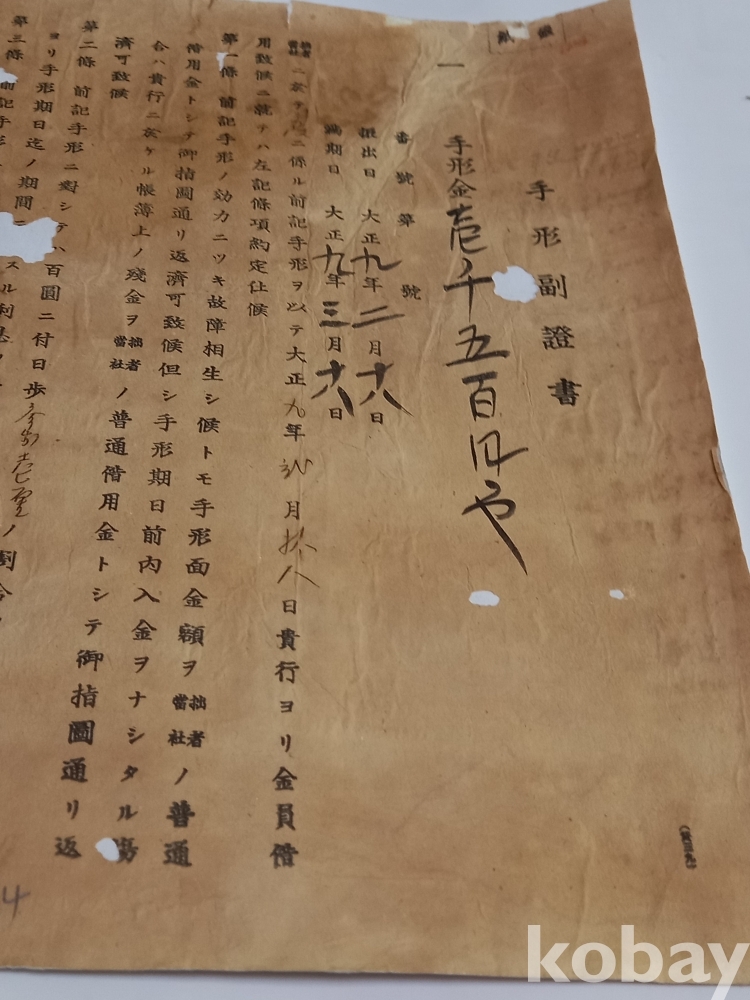 手形副證書
一 手形金壱千五百円や
番號第 號
振出日 大正九年二月十八日
滿期日 大正九年三月十八日
拙者當社ニ於テ ニ係ル前記手形ヲ以テ大正九年弐月拾八日貴行ヨリ金員借
用致候ニ就テハ左記條項約定仕候
第一條 前記手形ノ効力ニツキ故障相生シ候トモ手形面金額ヲ拙者當社ノ普通
借用金トシテ御指圖通リ返濟可致候但シ手形期日前内入金ヲナシタル場
合ハ貴行ニ於ケル帳簿上ノ殘金ヲ拙者當社ノ普通借用金トシテ御指圖通リ返
濟可致候
第二條 前記手形ニ對シテハ百圓ニ付日歩 ノ割合
ヨリ手形期日迄ノ期間ニ スル利息
第三條 前記手形
(貸三九)
4
kobay